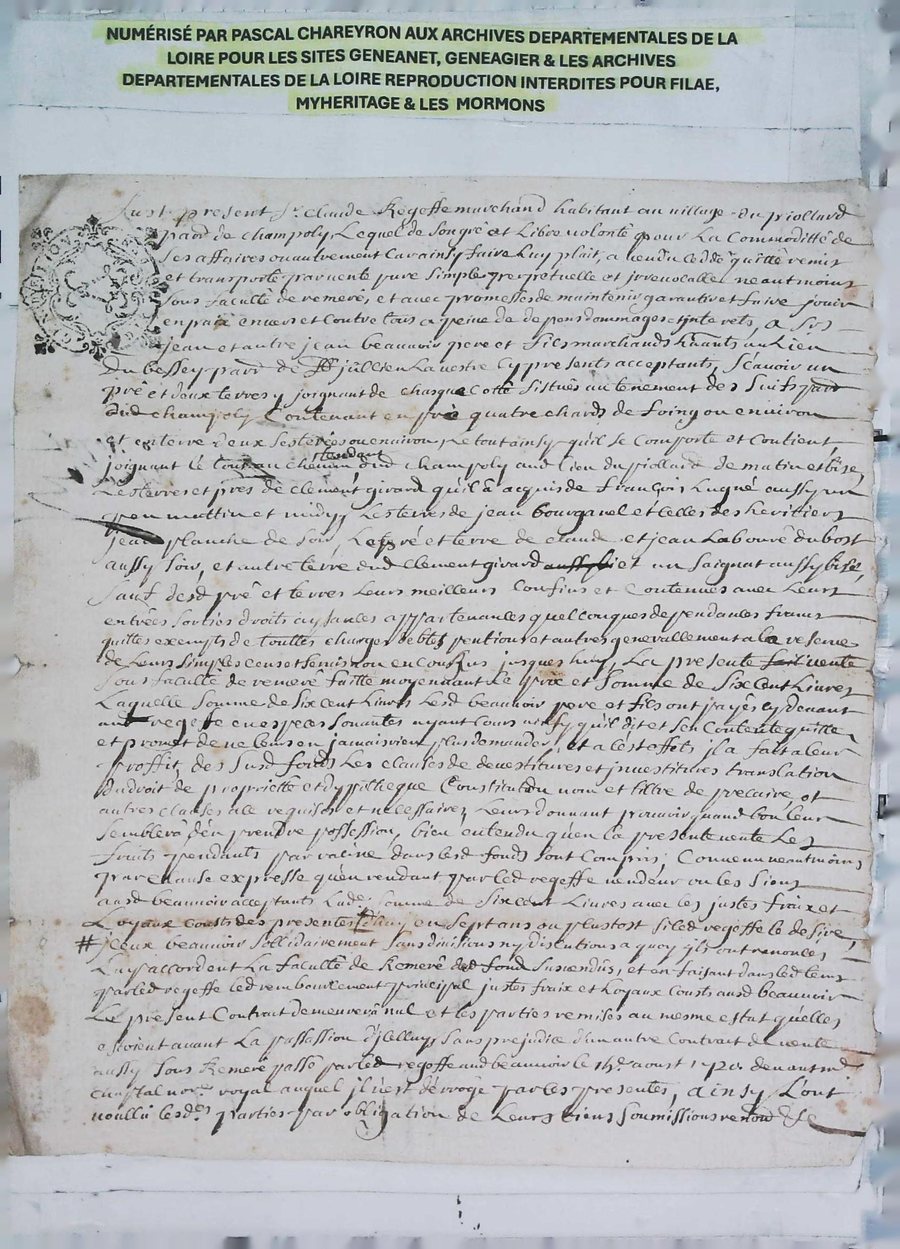 NUMÉRISÉ PAR PASCAL CHAREYRON AUX ARCHIVES DEPARTEMENTALES DE LA
LOIRE POUR LES SITES GENEANET, GENEAGIER & LES ARCHIVES
DEPARTEMENTALES DE LA LOIRE REPRODUCTION INTERDITES POUR FILAE,
MYHERITAGE & LES MORMONS
Fust present Sr Claude Regeffe marchand habitant au village du piollard
parr de champoly, Lequel de son gré et Libre volonté pour La Commoditté de
ses affaires ou autrement Car ainsy faire Luy plait, a vendu cedde quitté remis
et transporté par vente pure simple perpetuelle et irrevocable neantmoins
sous faculté de remeré, et avec promesses de maintenir garantir et faire jouir
en paix envers et Contre tous a peine de depens dommages et jnterets, a Srs
jean et autre jean beauvoir pere et fils marchands au Lieu
du bessey parr de St jullien La vestre cy presents acceptants, Scavoir un
pré et deux terres y joignant de chasque Cotté Sistués au tenement des parr
dud champoly Contenant en pré quatre chards de foing ou environ
et en terre deux Sesterées ou environ Le tout ainsy qu'il se Comporte et Contient
joignant le tout au chemin tendant dud champoly aud Lieu du piollard de matin et bize
Les terres et prés de Clement girard qu'il a acquis de françois aussy un
peu mattin et midy, Les terres de jean bourganel et celles des heritiers
jean planche de Soir, Le pré et terre de claude et jean Labouré du bost
aussy Soir, et autre terre dud Clement girard et un Saignat aussy bize,
Sauf desd pré et terres Leurs meilleurs Confins et Contenues avec Leurs
entrées Sorties droits aysances appartenances quelconques dependances francs
quittes exempts de touttes charges debtes pentions et autres generallement a la reserve
de Leurs simples cens et Servis non encourus jusques huy, La presente vente
sous faculté de remeré faitte moyennant Le prix et Somme de Six Cent Livres
Laquelle Somme de Six Cent Livres Lesd beauvoir pere et fils ont payés cy devant
aud regeffe en especes Sonantes ayant Cours ainsy qu'il dit et s'en Contente quitte
et promet de ne Leurs en jamais rien plus demander, et a Cest effets jl a fait a Leur
proffit des Susd fonds Les clauses de devestitures et jnvestitures translation
du droit de proprieté et d'ypotheque Constitution nom et tiltre de precaire, et
autres clauses a ce requises et necessaires Leurs donnant pouvoir quand bon Leur
Semblera d'en prendre possession, bien entendu qu'en La presente vente Les
fruits pendants par racine dans lesd fonds Sont Compris; Convenu neantmoins
par Clause expresse qu'en rendant par led regeffe vendeur ou les Siens
ausd beauvoir acceptants Lade Somme de Six Cent Livres avec les justes fraix et
Loyaux Cousts des presentes d'huy en Sept ans ou plustost Si led regeffe le desire,
# jceux beauvoir Sollidairement Sans divisions ny discutions a quoy jls ont renoncés
Luy accordent La faculté de Remeré desd fond Susvendus, et en faisant dans led tems
par led regeffe led remboursement principal justes fraix et Loyaux Cousts ausd beauvoir
Le present Contrat demeurera nul et les parties remises au mesme estat qu'elles
estoient avant La passassion d'jcelluy Sans prejudice d'un autre Contract de vente
aussy Sous Remeré passé par led regeffe aud beauvoir le aoust devant me
nore royal auquel jl n'est derrogé par les presentes, ainsy L'ont
voullu lesdes parties par obligation de Leurs biens Soumissions